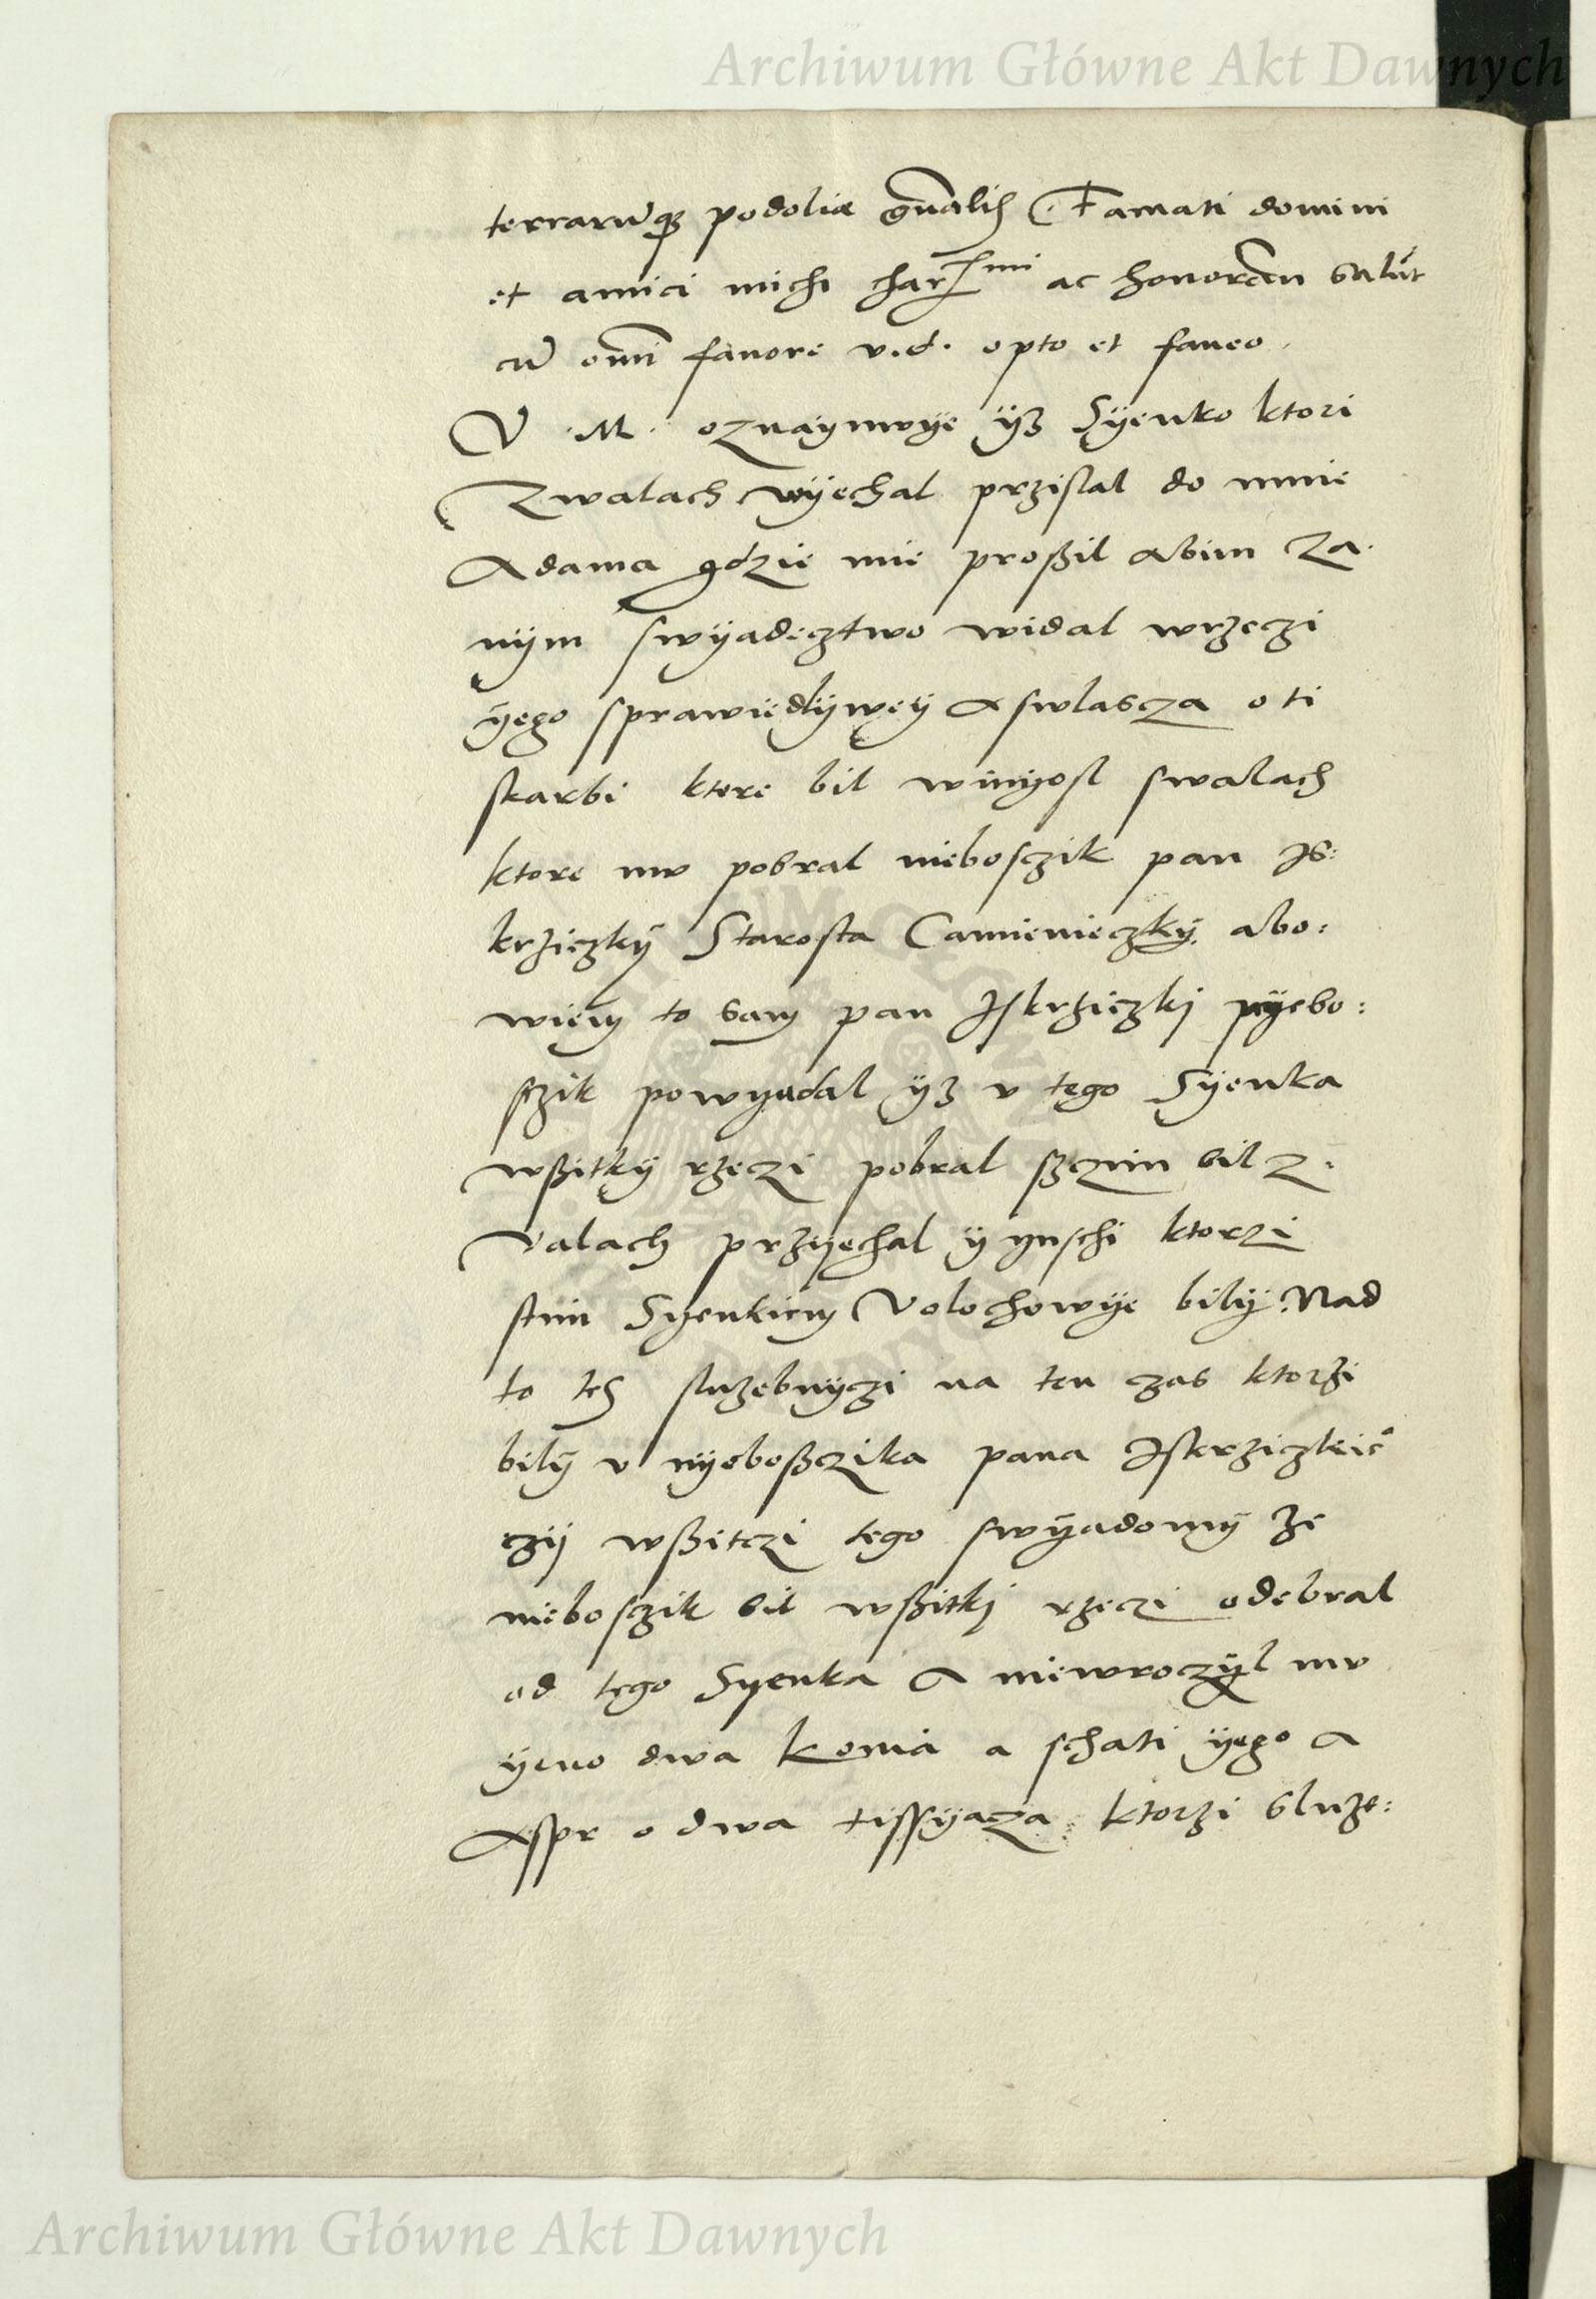 Archiwum Główne Akt Dawnych
terrarūqȝ podoliæ gnālis Famati domini
et amici michi char^mi ac honorān salūt
cū omī favore v.d. opto et faveo.
V .M. oznaÿmvÿe ÿß Sÿenko ktori
Zwalach wÿechal przislal do mnie
Adama gdzie mie proßil abim za
nÿm swÿadecztwo widal wrzeczi
ÿego sprawiedlÿweÿ a swlascza o ti
skarbi ktore bil winÿosl swalach
ktore mv pobral niebosczik pan Is:
krziczkÿ Starosta Camienieczkÿ. abo:
wiem to sam pan Iskrziczkj nÿebo:
sczik powÿadal ÿß v tego Sÿenka
wßitkÿ rzeczi pobral ßczim bil z:
Valach przÿechal ÿ ÿnschi ktorzi
stim Sÿenkiem Volochowÿe bilÿ. Nad
to tes sluzebnÿczi na ten czas ktorzi
bilÿ v nÿeboßczika pana Iskrziczkie°
czÿ wßitczi tego swÿadomÿ ze
niebosczik bil wßitkj rzeczi odebral
od tego Syenka a niewroczÿl mv
ÿeno dwa konia a schati ÿego a
Aspr o dwa tissÿacza ktorzi sluze:
Archiwum Główne Akt Dawnych